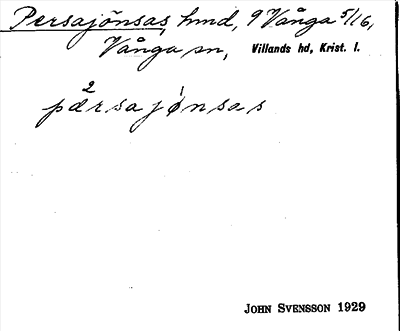 Persajönsas, hmd, 9 Vånga 5/16,
Vånga sn, Villands hd, Krist. l.
2
pærsajønsas
JOHN SVENSSON 1929